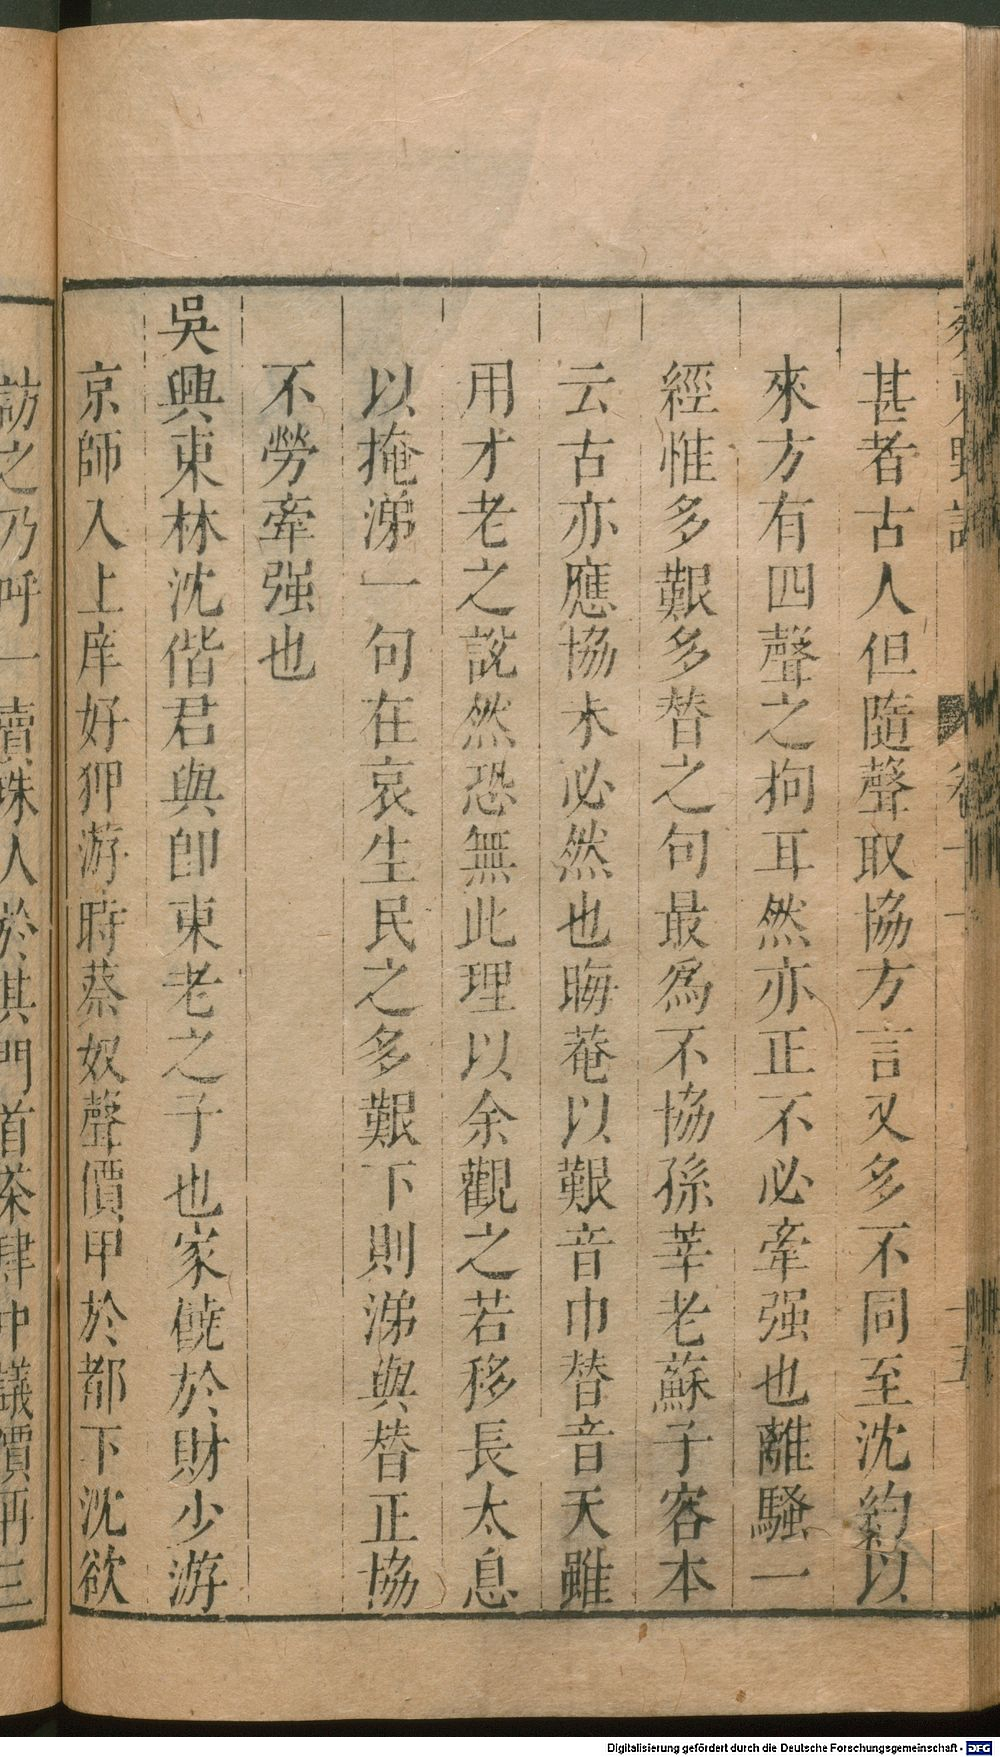 甚者古人但隨聲取協方言又多不同至沈約以
來方有四聲之拘耳然亦正不必牽强也離騷一
經惟多艱多替之句最爲不協孫莘老蘇子容本
云古亦應協未必然也晦菴以艱音巾替音天雖
用才老之說然恐無此理以余觀之若移長太息
以掩涕一句在哀生民之多艱下則涕與替正協
不勞牽强也
吳興東林沈偕君與卽東老之子也家饒於財少游
京師入上庠好狎游時蔡奴聲價甲於都下沈欲
訪之乃呼一賣珠人於其門首茶肆中議價再三
Digitalisierung gefördert durch die Deutsche Forschungsgemeinschaft - DFG